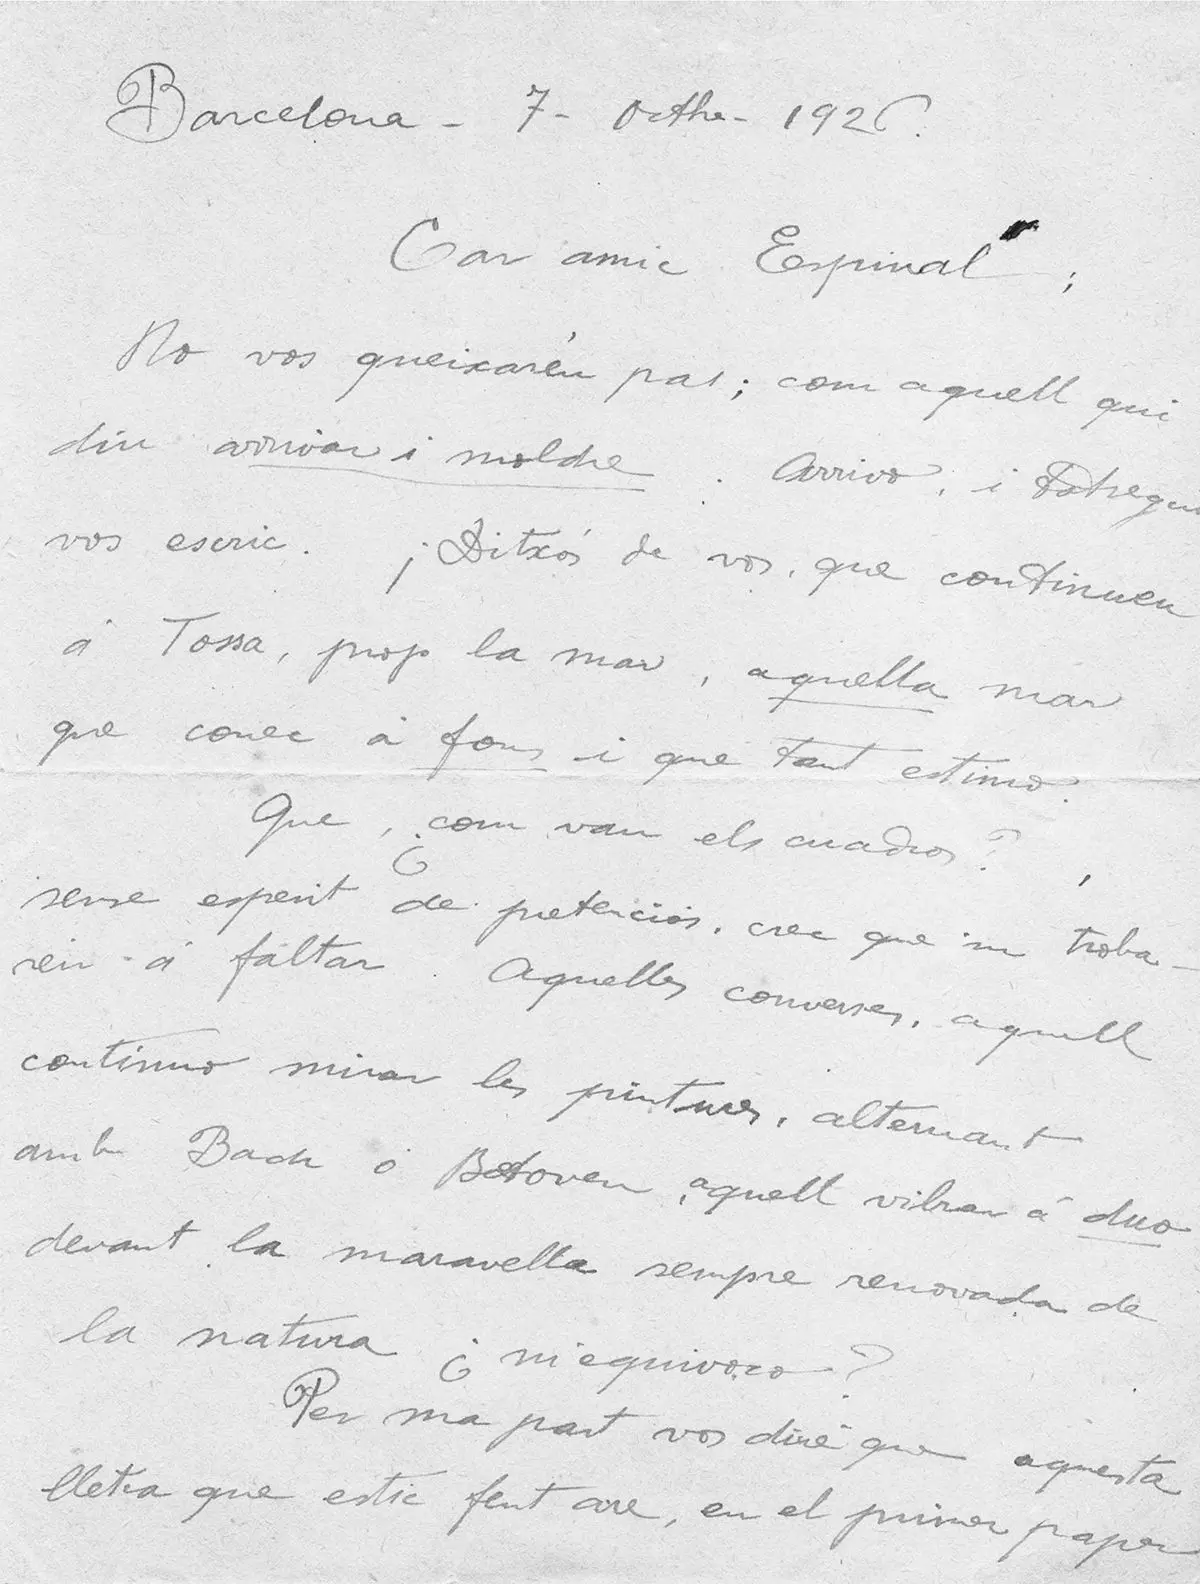 Barcelona - 7 - Octbre - 1926.
Car amic Espinal ;
No vos queixaréu pas ; com aquell qui
diu arrivar i moldre . Arrivo, i
vos escric. ¡Ditxós de vos, que continueu
á Tossa, prop la mar, aquella mar
que conec á fons i que tant estimo.
Que, ¿com van els cuadros? ,
sense esperit de pretenciós, crec que m troba-
reu á faltar . Aquelles converses, aquell
continuo mirar les pintures, alternant
amb Bach ó Betoven, aquell vibrar á duo
devant la maravella sempre renovada de
la natura ¿ m'equivoco ?
Per ma part vos diré que aquesta
lletra que estic fent are, en el primer paper